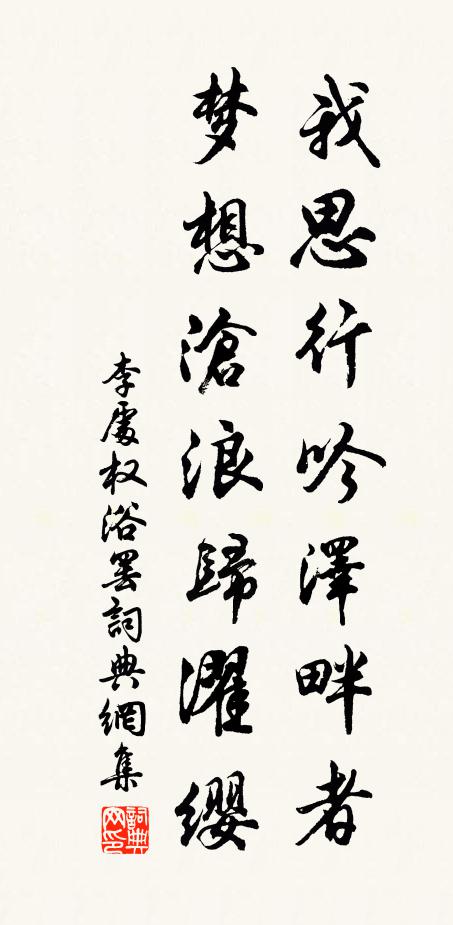 我思行吟澤畔者
梦想滄浪歸濯纓
李處权浴罢詞典網集
詞典网印